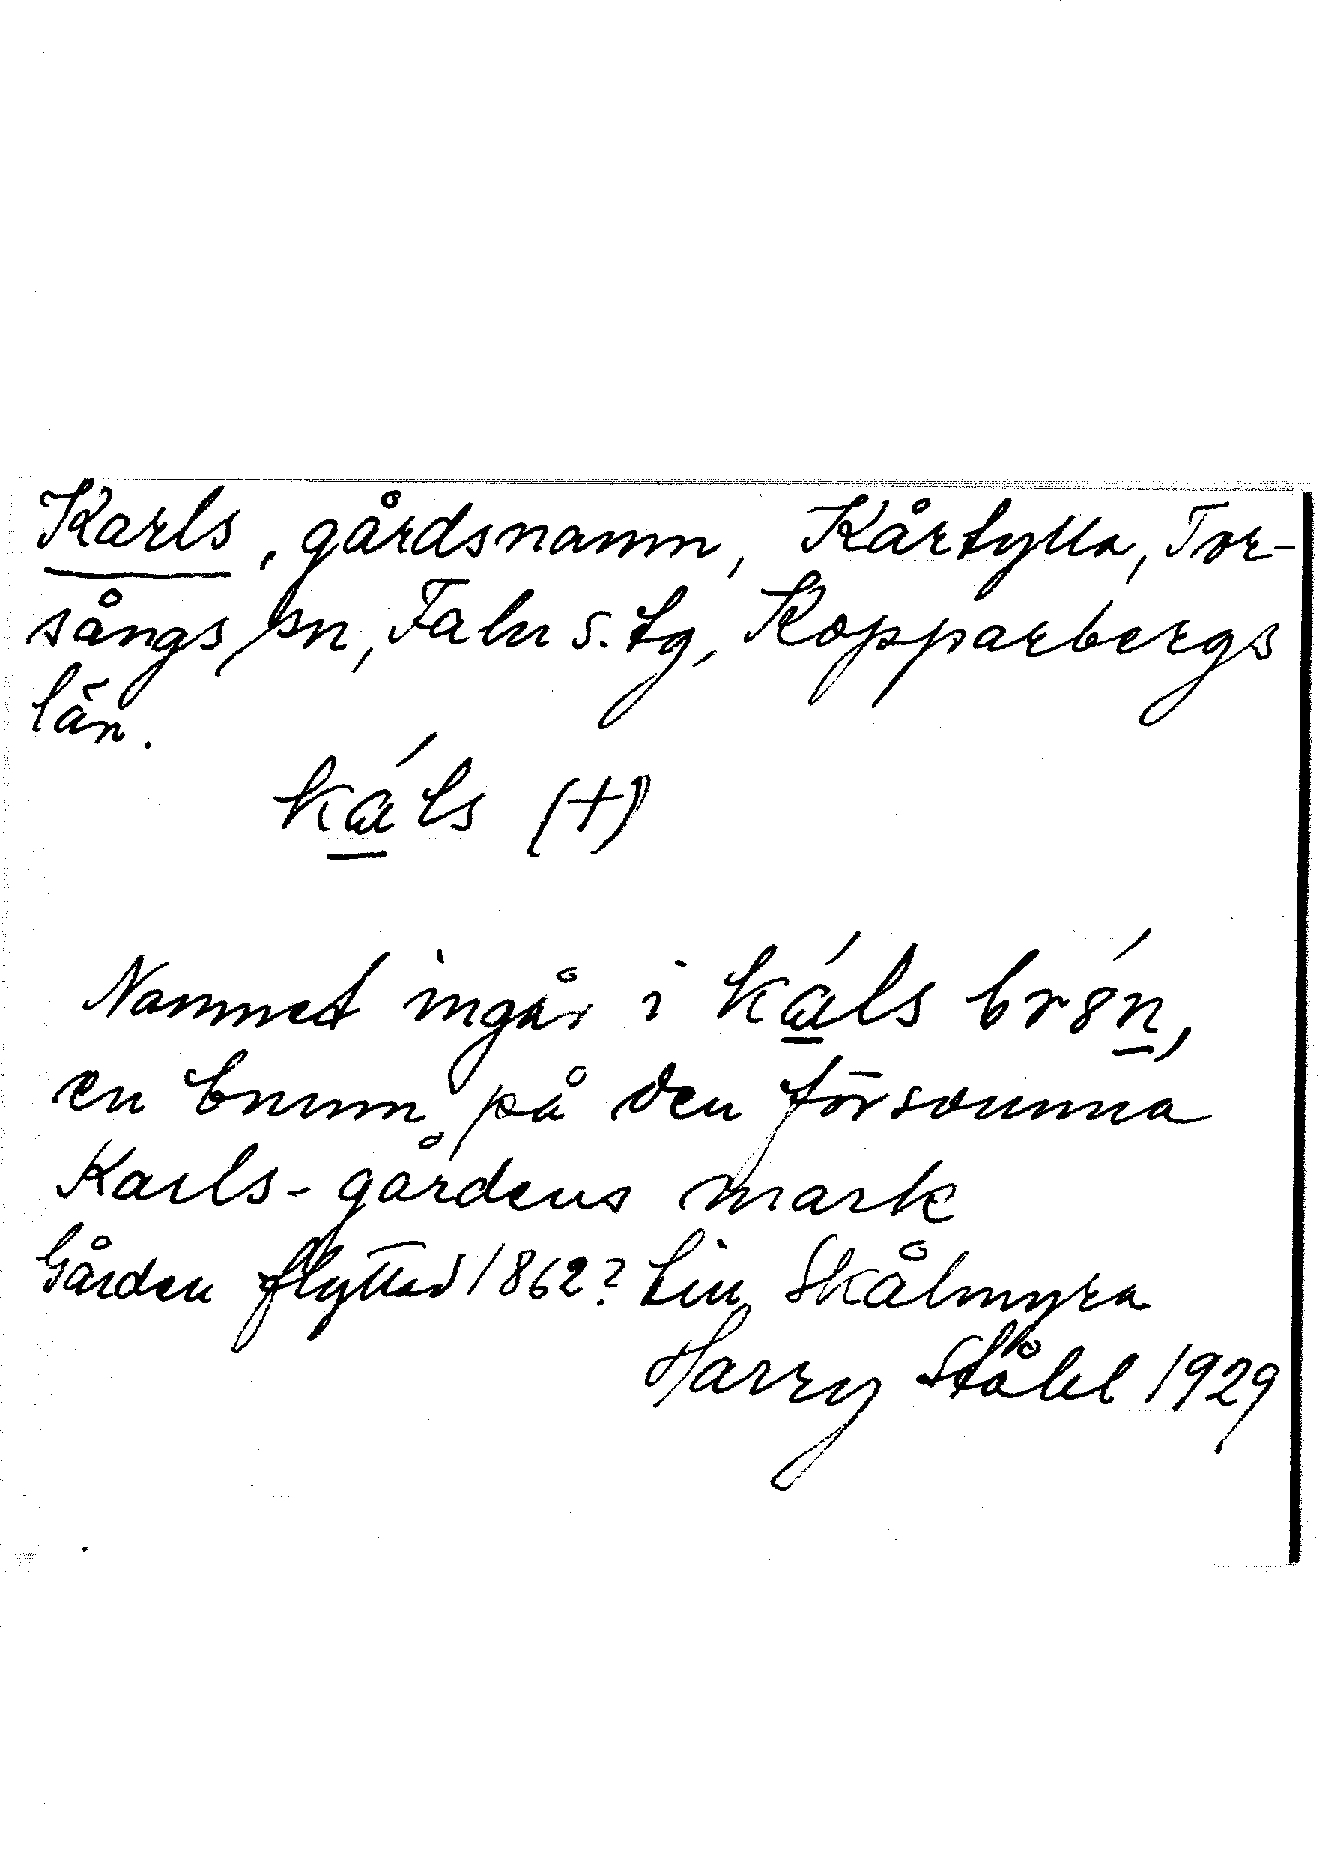 Karls, gårdsnamn, Kårtylla, Tor-
sångs sn, Falu s. tg, Kopparbergs
län.
káls (+)
Namnet ingår i káls br8́n,
en brunn på den försvunna
Karls-gårdens mark
Gården flyttad 1862? till Skålmyra
Harry Ståhl 1929